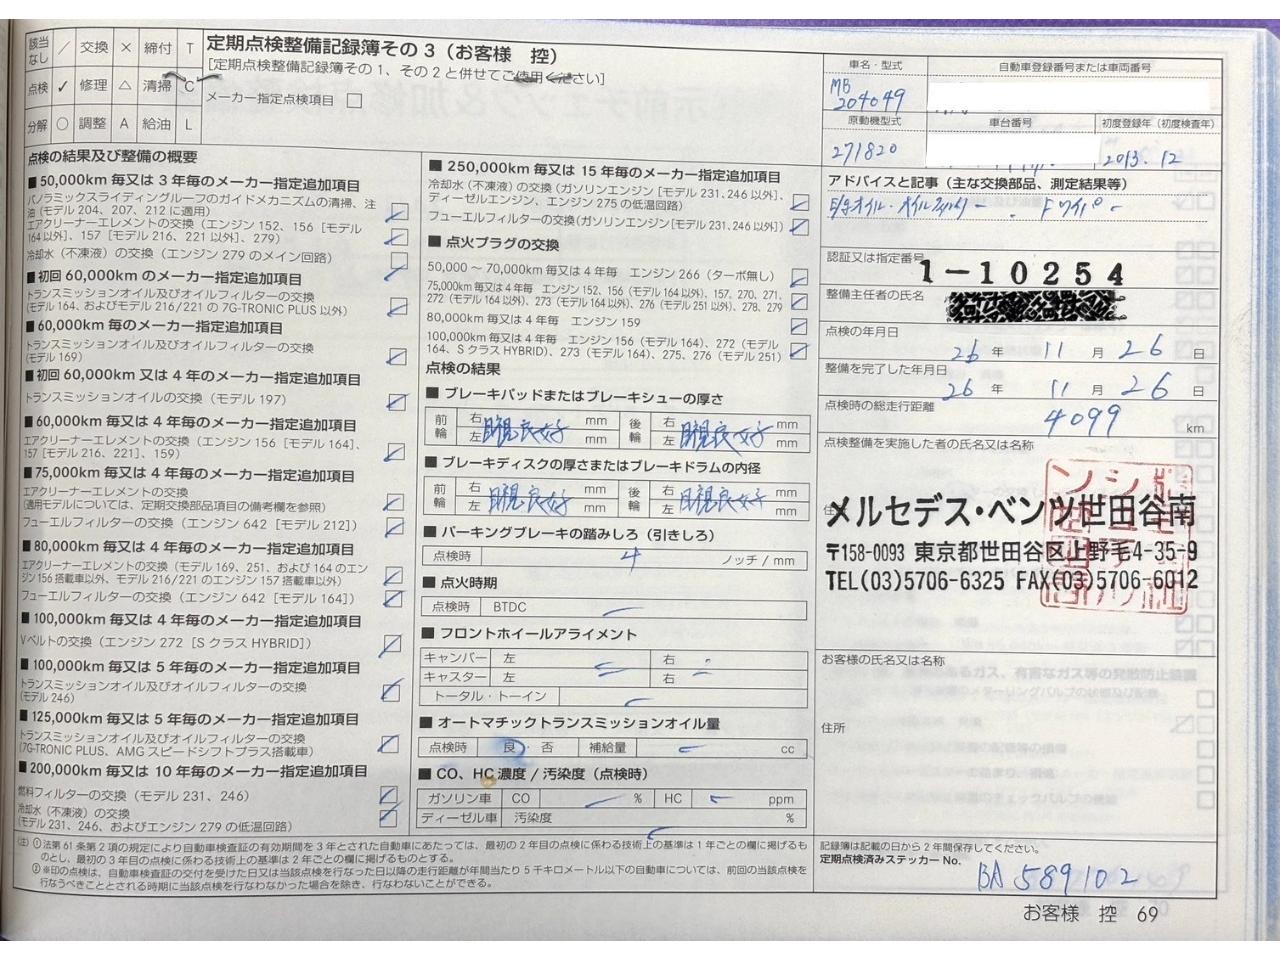 該当なし ／ 交換 × 締付 T
点検 ✓ 修理 △ 清掃 C
分解 ○ 調整 A 給油 L
定期点検整備記録簿その3（お客様 控）
[定期点検整備記録簿その1、その2と併せてご使用ください]
メーカー指定点検項目
点検の結果及び整備の概要
■50,000km 毎又は3年毎のメーカー指定追加項目
パノラミックスライディングルーフのガイドメカニズムの清掃、注油（モデル 204、207、212 に適用）
エアクリーナーエレメントの交換（エンジン 152、156［モデル 164以外］、157［モデル 216、221 以外］、279）
冷却水（不凍液）の交換（エンジン 279 のメイン回路）
■初回 60,000km のメーカー指定追加項目
トランスミッションオイル及びオイルフィルターの交換
（モデル 164、およびモデル 216/221 の 7G-TRONIC PLUS 以外）
■60,000km 毎のメーカー指定追加項目
トランスミッションオイル及びオイルフィルターの交換
（モデル 169）
■初回 60,000km 又は 4 年毎のメーカー指定追加項目
トランスミッションオイルの交換（モデル 197）
■60,000km 毎又は 4 年毎のメーカー指定追加項目
エアクリーナーエレメントの交換（エンジン 156［モデル 164］、
157［モデル 216、221］、159）
■75,000km 毎又は 4 年毎のメーカー指定追加項目
エアクリーナーエレメントの交換
（適用モデルについては、定期交換部品項目の備考欄を参照）
フューエルフィルターの交換（エンジン 642［モデル 212］）
■80,000km 毎又は 4 年毎のメーカー指定追加項目
エアクリーナーエレメントの交換（モデル 169、251、および 164 のエンジン 156 搭載車以外、モデル 216/221 のエンジン 157 搭載車以外）
フューエルフィルターの交換（エンジン 642［モデル 164］）
■100,000km 毎又は 4 年毎のメーカー指定追加項目
V ベルトの交換（エンジン 272［S クラス HYBRID］）
■100,000km 毎又は 5 年毎のメーカー指定追加項目
トランスミッションオイル及びオイルフィルターの交換
（モデル 246）
■125,000km 毎又は 5 年毎のメーカー指定追加項目
トランスミッションオイル及びオイルフィルターの交換
（7G-TRONIC PLUS、AMG スピードシフトプラス搭載車）
■200,000km 毎又は 10 年毎のメーカー指定追加項目
燃料フィルターの交換（モデル 231、246）
冷却水（不凍液）の交換
（モデル 231、246、およびエンジン 279 の低温回路）
■250,000km 毎又は 15 年毎のメーカー指定追加項目
冷却水（不凍液）の交換（ガソリンエンジン［モデル 231、246 以外］、
ディーゼルエンジン、エンジン 275 の低温回路）
フューエルフィルターの交換（ガソリンエンジン［モデル 231、246 以外］）
■点火プラグの交換
50,000 ～ 70,000km 毎又は 4 年毎 エンジン 266（ターボ無し）
75,000km 毎又は 4 年毎 エンジン 152、156（モデル 164 以外）、157、270、271、
272（モデル 164 以外）、273（モデル 164 以外）、276（モデル 251 以外）、278、279
80,000km 毎又は 4 年毎 エンジン 159
100,000km 毎又は 4 年毎 エンジン 156（モデル 164）、272（モデル
164、S クラス HYBRID）、273（モデル 164）、275、276（モデル 251）
点検の結果
■ブレーキパッドまたはブレーキシューの厚さ
前輪 右 左 目視良好 mm mm 後輪 右 左 目視良好 mm mm
■ブレーキディスクの厚さまたはブレーキドラムの内径
前輪 右 左 目視良好 mm mm 後輪 右 左 目視良好 mm mm
■パーキングブレーキの踏みしろ（引きしろ）
点検時 4 ノッチ / mm
■点火時期
点検時 BTDC
■フロントホイールアライメント
キャンバー 左 右
キャスター 左 右
トータル・トーイン
■オートマチックトランスミッションオイル量
点検時 良・否 補給量 cc
■CO、HC 濃度 / 汚染度（点検時）
ガソリン車 CO % HC ppm
ディーゼル車 汚染度 %
車名・型式
MB
204049
自動車登録番号または車両番号
原動機型式
271820
車台番号
初度登録年（初度検査年）
2013. 12
アドバイスと記事（主な交換部品、測定結果等）
認証又は指定番号
1-10254
整備主任者の氏名
点検の年月日
26 年 11 月 26 日
整備を完了した年月日
26 年 11 月 26 日
点検時の総走行距離
4099 km
点検整備を実施した者の氏名又は名称
メルセデス・ベンツ世田谷南
〒158-0093 東京都世田谷区上野毛4-35-9
TEL(03)5706-6325 FAX(03)5706-6012
お客様の氏名又は名称
住所
（注）①法第 61 条第 2 項の規定により自動車検査証の有効期間を 3 年とされた自動車にあたっては、最初の 2 年目の点検に係わる技術上の基準は 1 年ごとの欄に掲げるものとし、最初の 3 年目の点検に係わる技術上の基準は 2 年ごとの欄に掲げるものとする。
②※印の点検は、自動車検査証の交付を受けた日又は当該点検を行なった日以降の走行距離が年間当たり 5 千キロメートル以下の自動車については、前回の当該点検を行なうべきこととされる時期に当該点検を行なわなかった場合を除き、行なわないことができる。
記録簿は記載の日から 2 年間保存してください。
定期点検済みステッカー No.
BA 589102
お客様 控 69